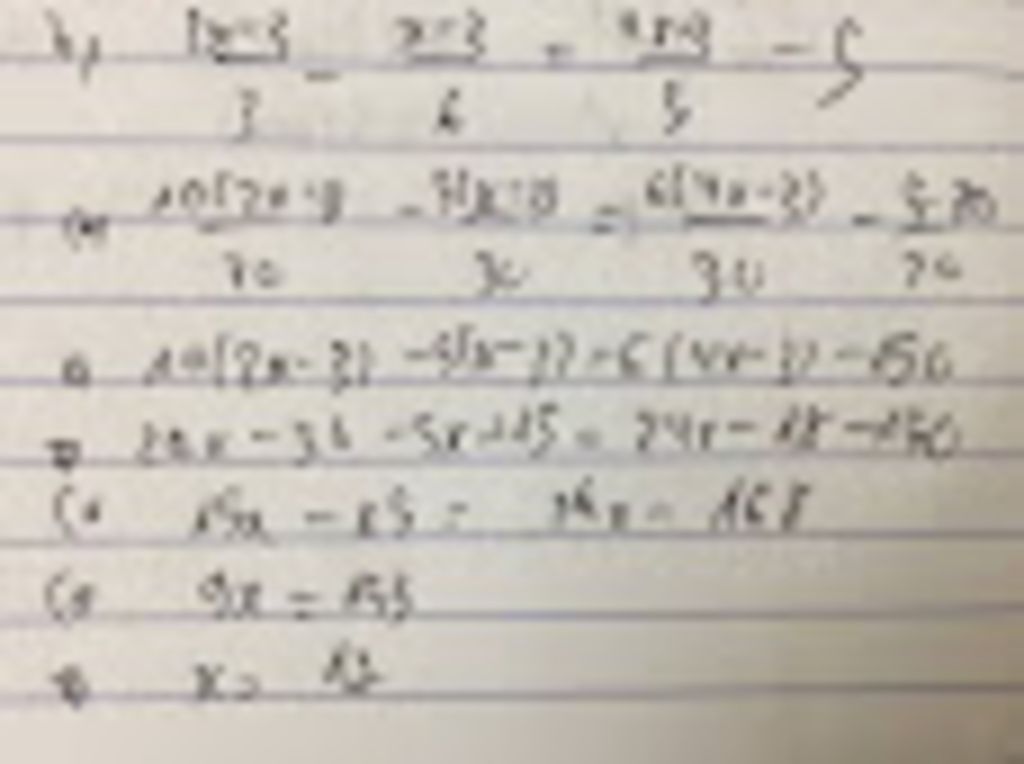 b, (2x-3)/3 - (x-3)/6 = (4x-3)/5 - 5
⇔ 10(2x-3)/30 - 5(x-3)/30 = 6(4x-3)/30 - 5.30/30
⇔ 10(2x-3) - 5(x-3) = 6(4x-3) - 150
⇔ 20x - 30 - 5x + 15 = 24x - 18 - 150
⇔ 15x - 15 = 24x - 168
⇔ 9x = 153
⇔ x = 17